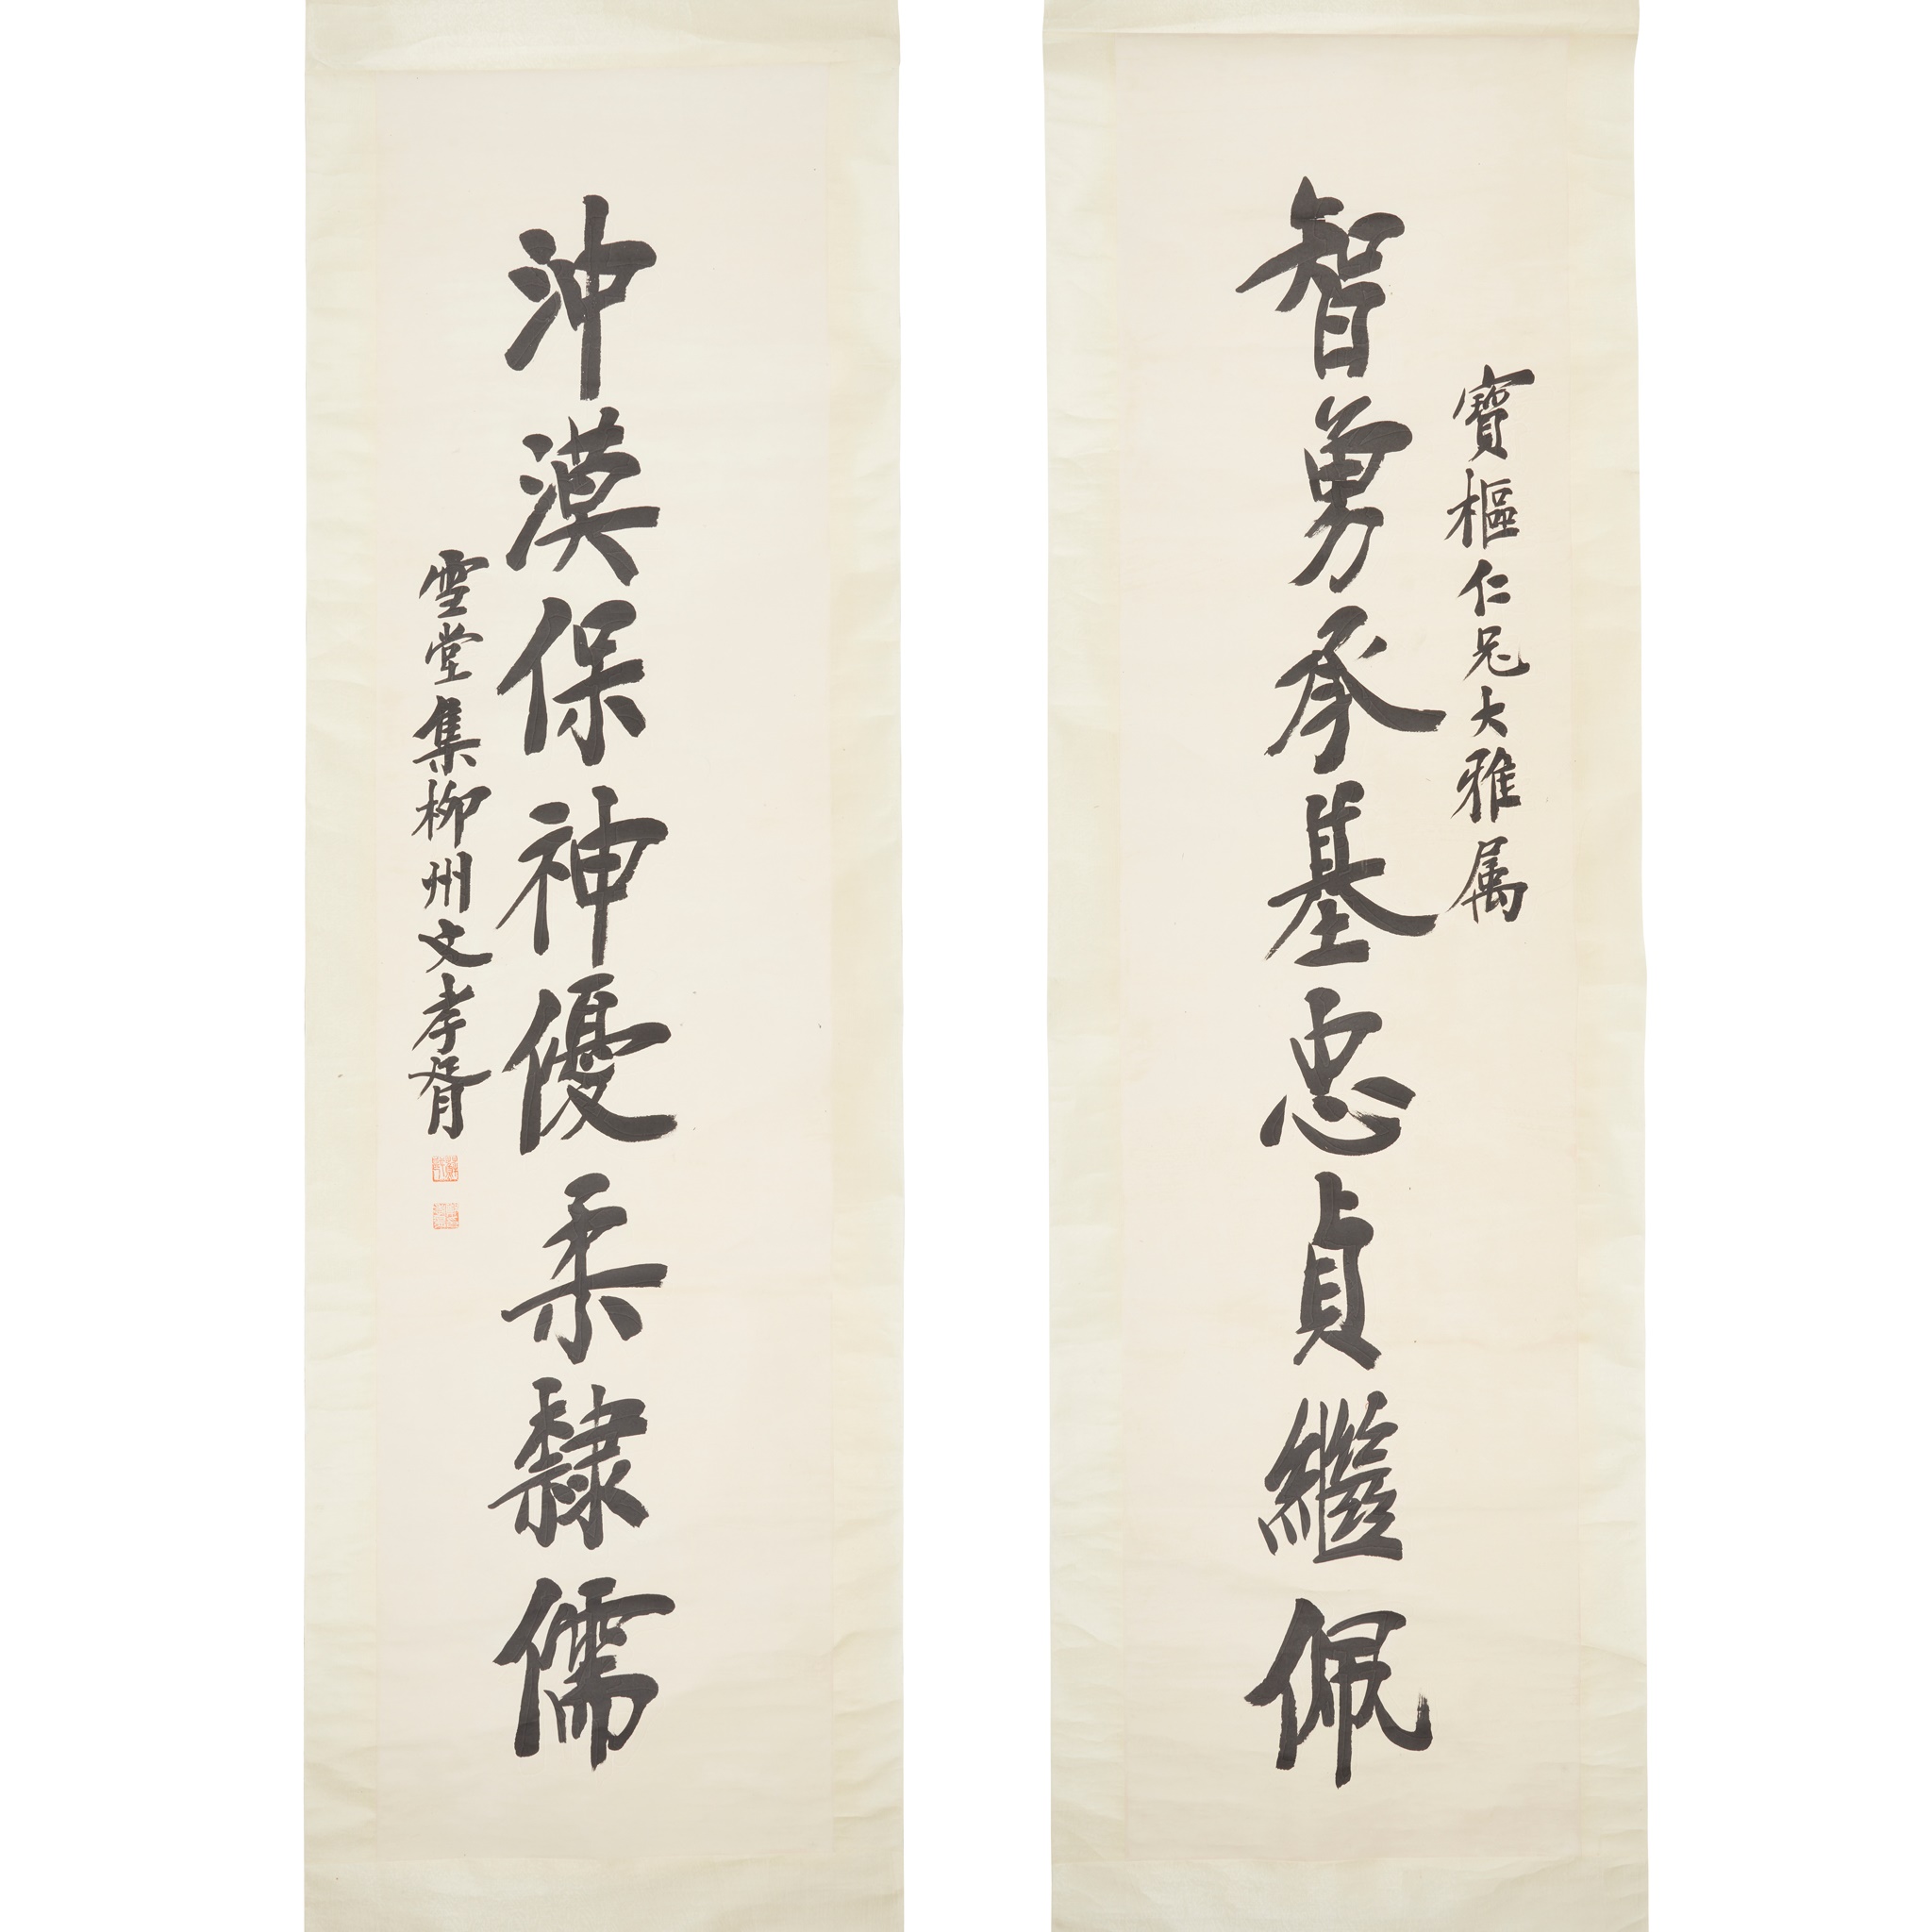 寶樞仁兄大雅属
智勇承基忠貞繼佩
沖漠保神優柔隸儒
雪堂集柳州文孝胥